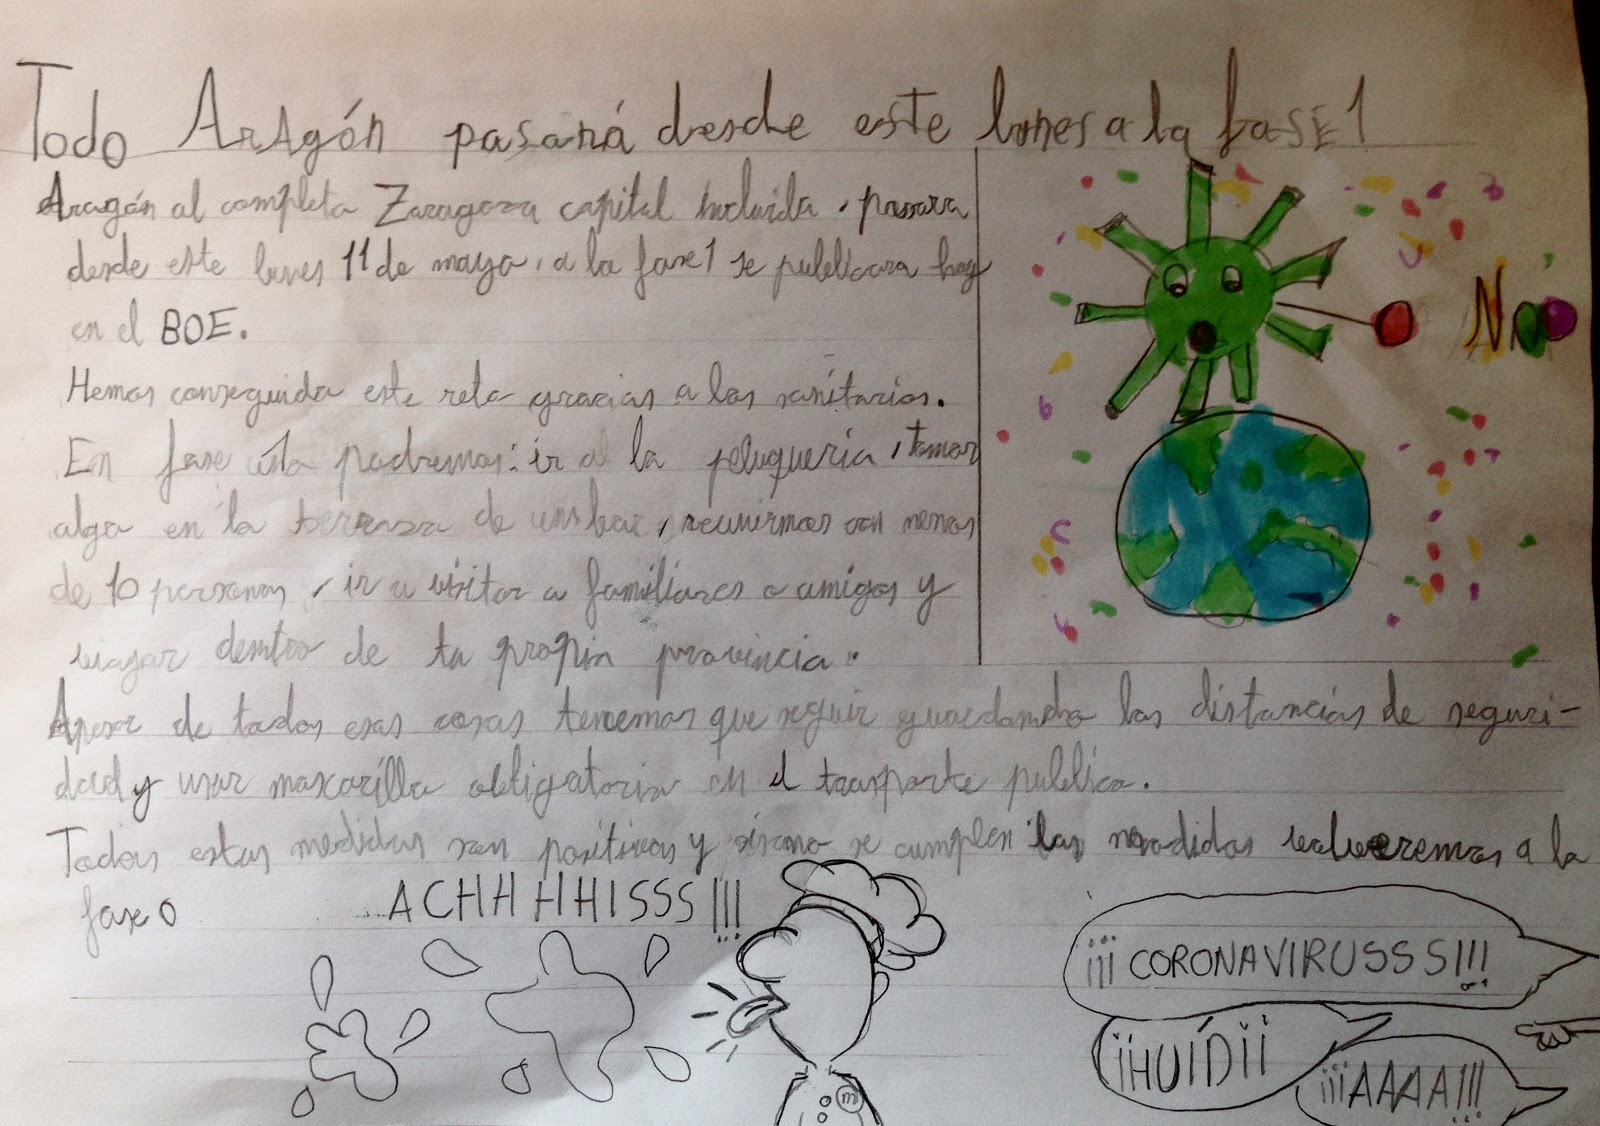 Todo Aragón pasará desde este lunes a la fase 1
Aragón al completo Zaragoza capital incluida, pasara
desde este lunes 11 de mayo, a la fase 1 se publicara hoy
en el BOE.
Hemos conseguido este reto gracias a los sanitarios.
En fase ésta podremos: ir a la peluquería, tomar
algo en la terraza de un bar, reunirnos con menos
de 10 personas, ir a visitar a familiares o amigos y
viajar dentro de tu propia provincia.
Apesar de todas esas cosas tenemos que seguir guardando las distancias de seguri-
dad y usar mascarilla obligatoria en el trasporte publico.
Todas estas medidas son positivas y si no se cumplen las medidas volveremos a la
fase 0
Noo
ACHHHHISSS!!!
¡¡¡CORONAVIRUSSS!!!
¡¡HUÍD¡¡
¡¡¡AAAA!!!